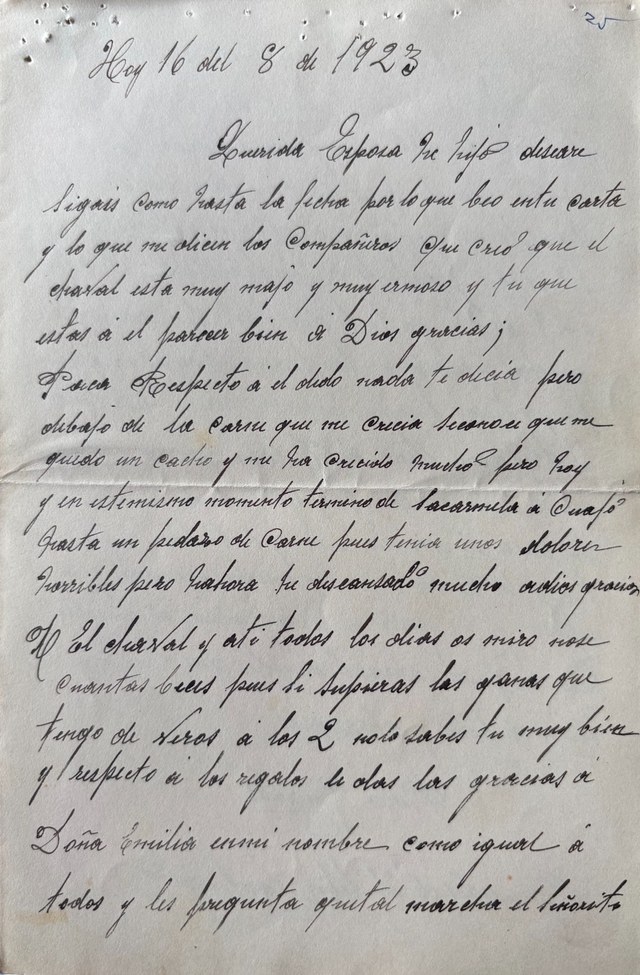 25
Hoy 16 del 8 de 1923
Querida Esposa he hijo deseare
sigais como hasta la fecha por lo que beo entu carta
y lo que me dicen los Compañeros que creo que el
chaval esta muy majo y muy ermoso y tu que
estas á el parecer bien á Dios gracias;
Paca Respecto á el dedo nada te decia pero
debajo de la carne que me crecia seconoce que me
quedo un cacho y me ha crecido mucho pero hoy
y en estemismo momento termino de sacarmela á cuajo
hasta un pedazo de carne pues tenia unos dolores
horribles pero hahora he descansado mucho adios gracias
El chaval y ati todos los dias os miro nose
cuantas beces pues si supieras las ganas que
tengo de veros á los 2 nolo sabes tu muy bien
y respecto á los regalos le das las gracias á
Doña Emilia enmi nombre como igual á
todos y les pregunta quetal marcha el Señorito